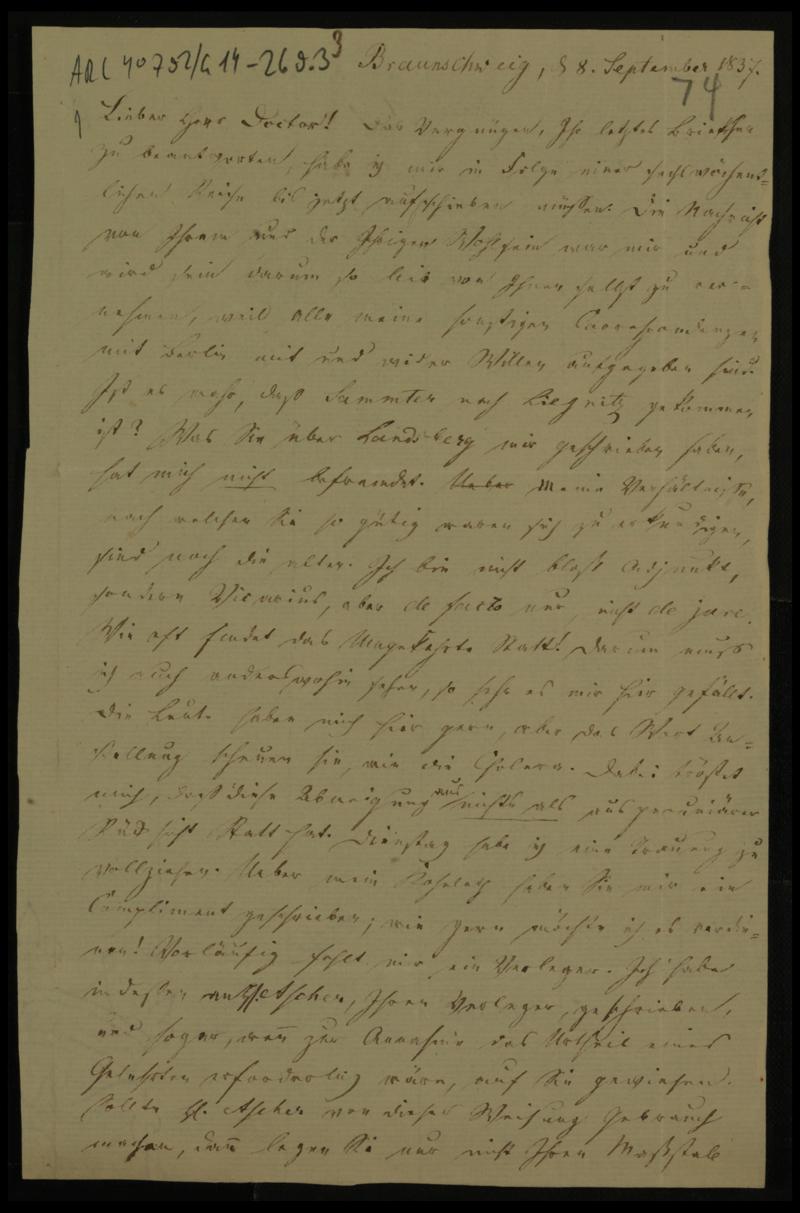 ARC 4o 792/G 14-269.3
3
Braunschweig, d 8. September 1837.
74
1
Lieber Herr Doctor! Das Vergnügen, Ihr letztes Briefchen
zu beantworten, habe ich mir in Folge einer sechswöchent=
lichen Reise bis jetzt aufschieben müssen. Die Nachricht
von Ihrem und der Ihrigen Wohlsein war mir und
wird sein darum so lieb von Ihnen selbst zu ver=
nehmen, weil alle meine sonstigen Correspondenzen
mit Berlin mit und wider Willen aufgegeben sind.
Ist es wahr, daß Sammter nach Liegnitz gekommen
ist? Was Sie über Landsberg mir geschrieben haben,
hat mich nicht befremdet. Ueber Meine Verhältnisse,
nach welchen Sie so gütig waren sich zu erkundigen,
sind noch die alten. Ich bin nicht bloß Adjunkt,
sondern Vicarius, aber de facto nur, nicht de jure.
Wie oft findet das Umgekehrte Statt! Darum muss
ich auch anderswohin sehen, so sehr es mir hier gefällt.
Die Leute haben mich hier gern, aber das Wort An=
stellung scheuen sie, wie die Cholera. Dabei tröstet
mich, daß diese Abneigung aus nichts als aus pecuniärer
Rücksicht Statt hat. Dienstag habe ich eine Trauung zu
vollziehen. Ueber mein Koheleth haben Sie mir ein
Compliment geschrieben; wie gern möchte ich es verdie=
nen! Vorläufig fehlt mir ein Verleger. Ich habe
indessen an H. Ascher, Ihren Verleger, geschrieben,
und sogar, wenn zur Annahme das Urtheil eines
Gelehrten erforderlich wäre, auf Sie gewiesen.
Sollte H. Ascher von dieser Weisung Gebrauch
machen, dann legen Sie nur nicht Ihren Maßstab